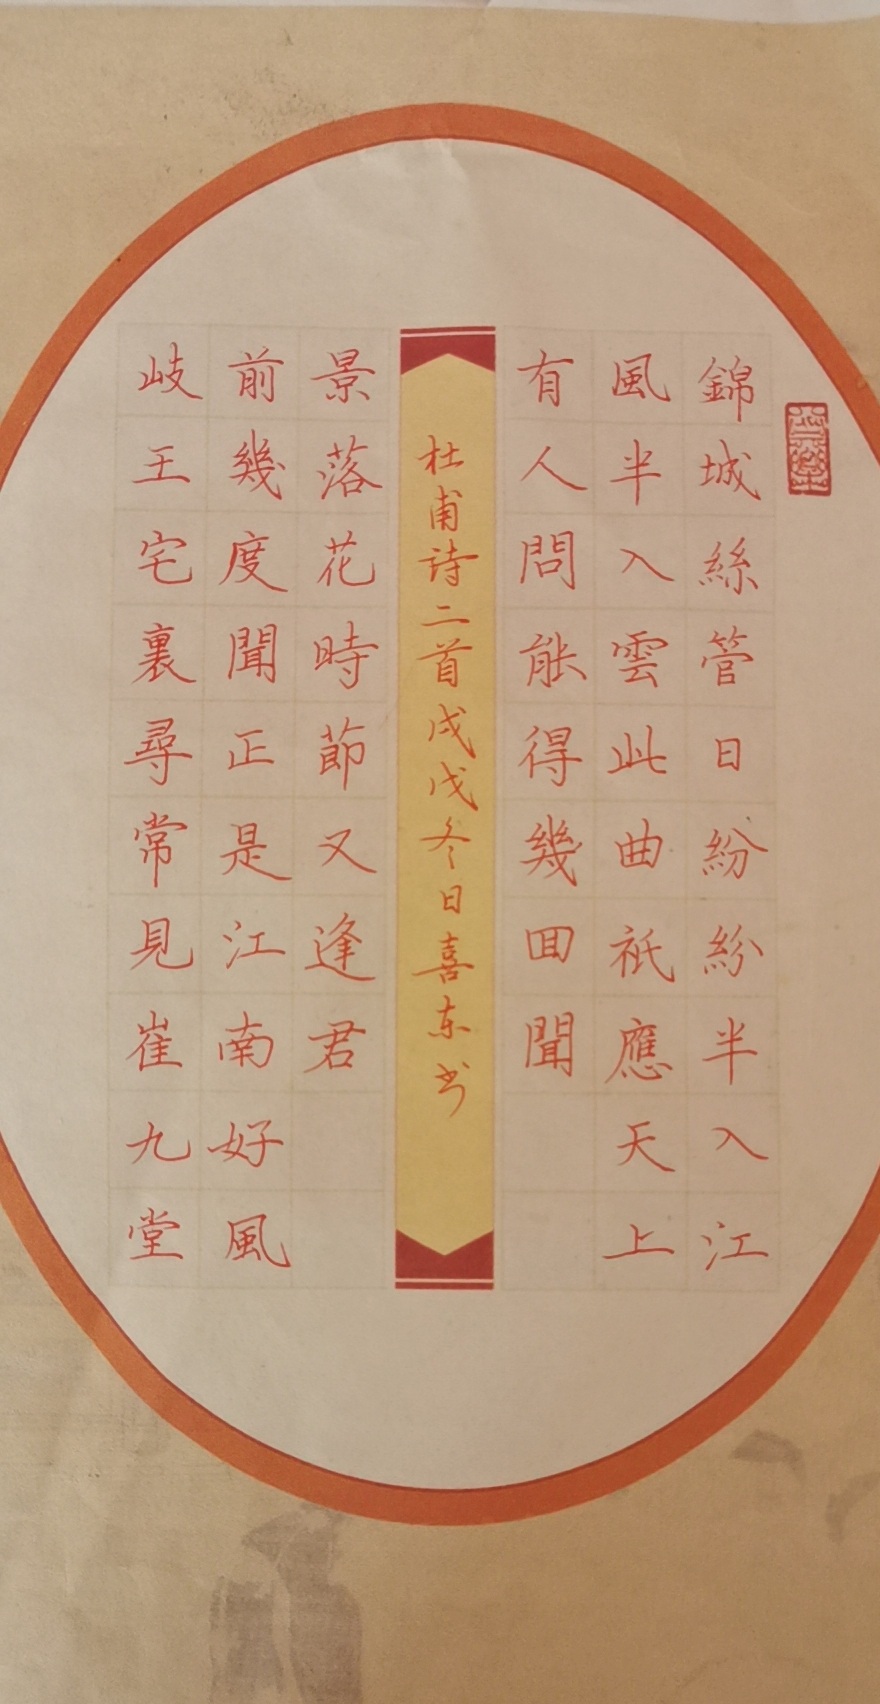 錦城絲管日紛紛半入江
風半入雲此曲祇應天上
有人問能得幾囬聞
岐王宅裏尋常見崔九堂
前幾度聞正是江南好風
景落花時節又逢君
杜甫诗二首戊戌冬日喜东书